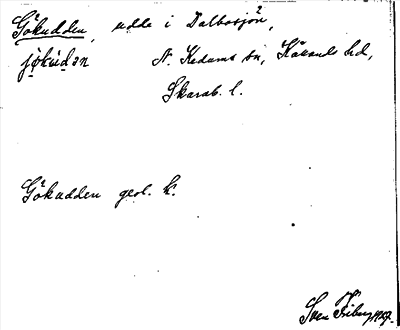 Gökudden, udde i Dalbosjön,
jökúdən N. Kedums sn, Kålands hd,
Skarab. l.
Gökudden geol. k.
Sven Friberg